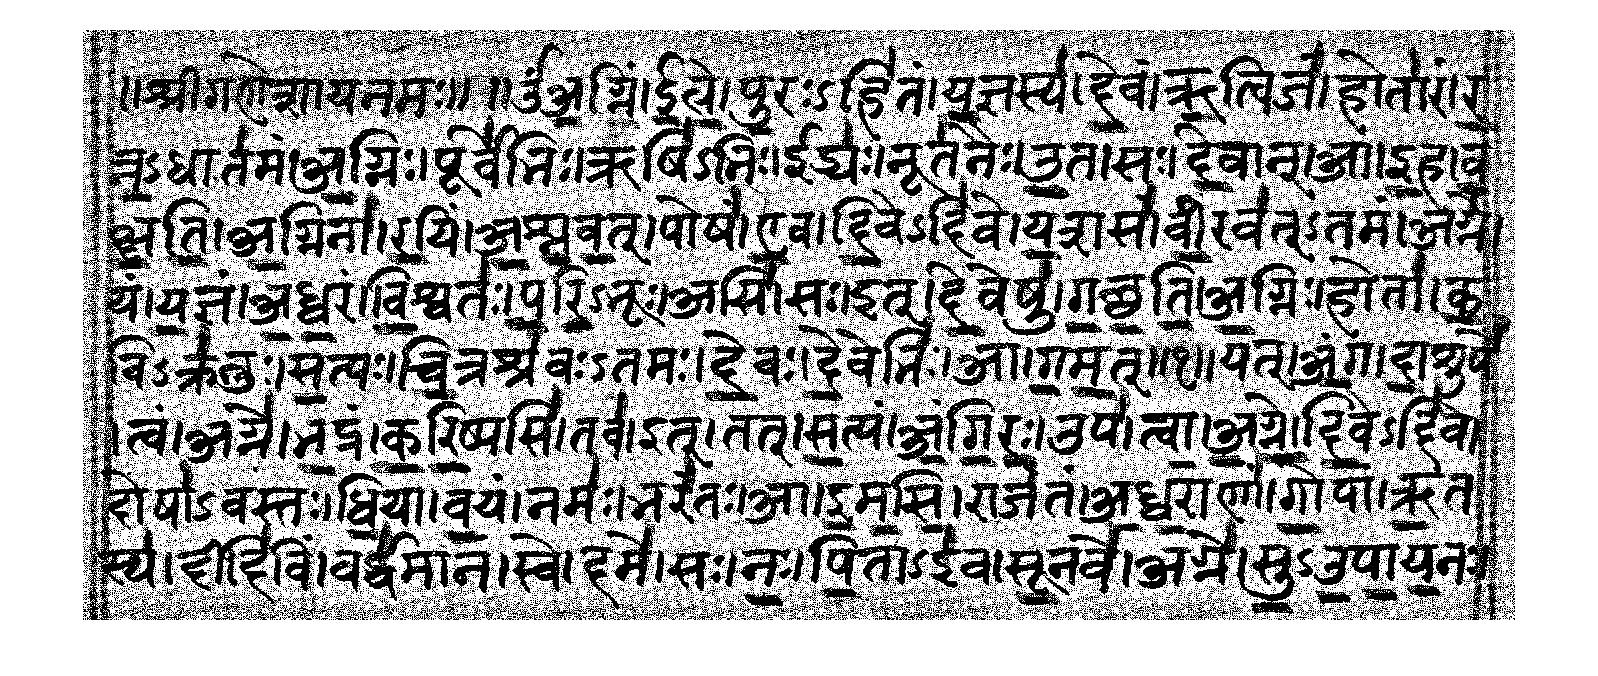 ॥श्रीगणेशायनमः॥ ॥उँअ॒ग्निं।ई॒ळे॒।पु॒रःऽहि॑तं।य॒ज्ञस्य॑।दे॒वं।ऋ॒त्विज॑।होता॑रं।र
त्न॒ऽधात॑मं।अ॒ग्निः।पूर्वे॑भिः।ऋषि॑ऽभिः।ईड्यः॑।नूत॑नैः।उ॒त।सः।दे॒वान्।आ।इ॒ह।व॒
क्ष॒ति॒।अ॒ग्निना॑।र॒यिं।अ॒श्न॒व॒त्।पोषं॑।ए॒व।दि॒वेऽदि॑वे।य॒शसं॑।वी॒रव॑त्ऽतमं।अग्ने॑।
यं।य॒ज्ञं।अ॒ध्व॒रं।वि॒श्वतः॑।प॒रि॒ऽभूः।असि॑।सः।इत्।दे॒वेषु॑।ग॒च्छ॒ति॒।अ॒ग्निः।होता॑।क॒
विऽक्र॑तुः।स॒त्यः।चि॒त्रश्र॑वःऽतमः।दे॒वः।दे॒वेभिः॑।आ।ग॒म॒त्॥१॥यत्।अं॒ग।दा॒शुषे॑
।त्वं।अग्ने॑।भ॒द्रं।क॒रि॒ष्यसि॑।तव॑।इत्।तत्।स॒त्यं।अं॒गि॒रः॒।उप॑।त्वा॒।अ॒ग्ने॒।दि॒वेऽदि॑वे
दोषा॑ऽवस्तः।धि॒या।व॒यं।नमः॑।भरं॑तः।आ।इ॒म॒सि॒।राजं॑तं।अ॒ध्व॒राणां॑।गो॒पां।ऋ॒त
स्य॑।दीदि॑विं।वर्द्ध॑मानं।स्वे।दमे॑।सः।नः॒।पि॒ताऽइ॑व।सू॒नवे॑।अग्ने॑।सु॒ऽउ॒पा॒य॒नः